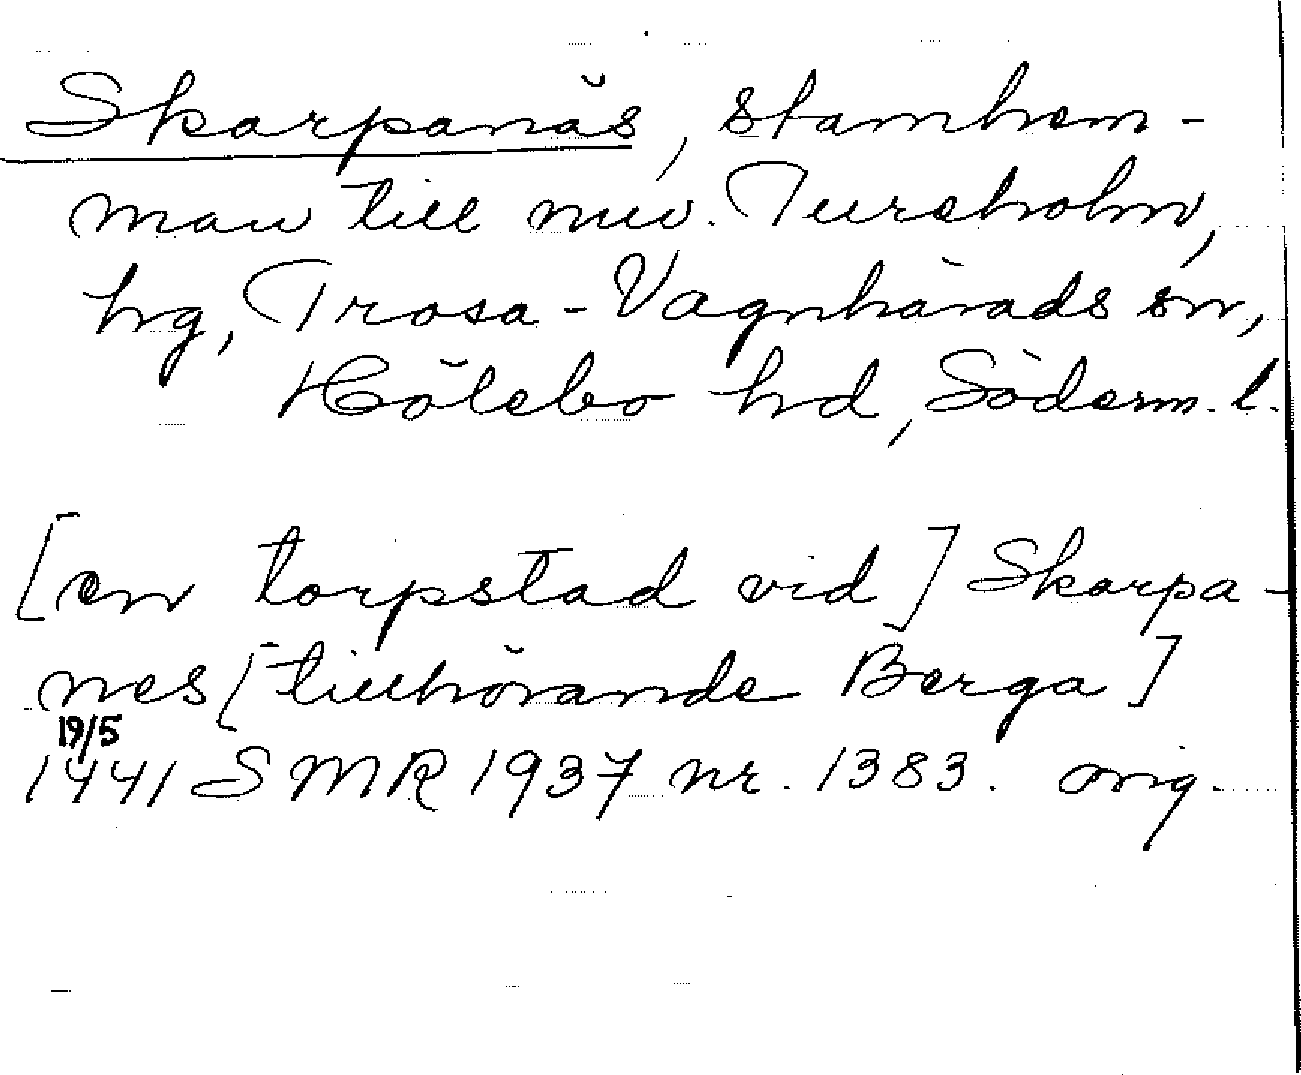 Skarpanäs, stamhem-
man till nuv. Tureholm,
hg, Trosa-Vagnhärads sn,
Hölebo hd, Söderm. l.
[en torpstad vid] Skarpa-
nes [tillhörande Berga]
19/5
1441 SMR 1937 nr. 1383. orig.